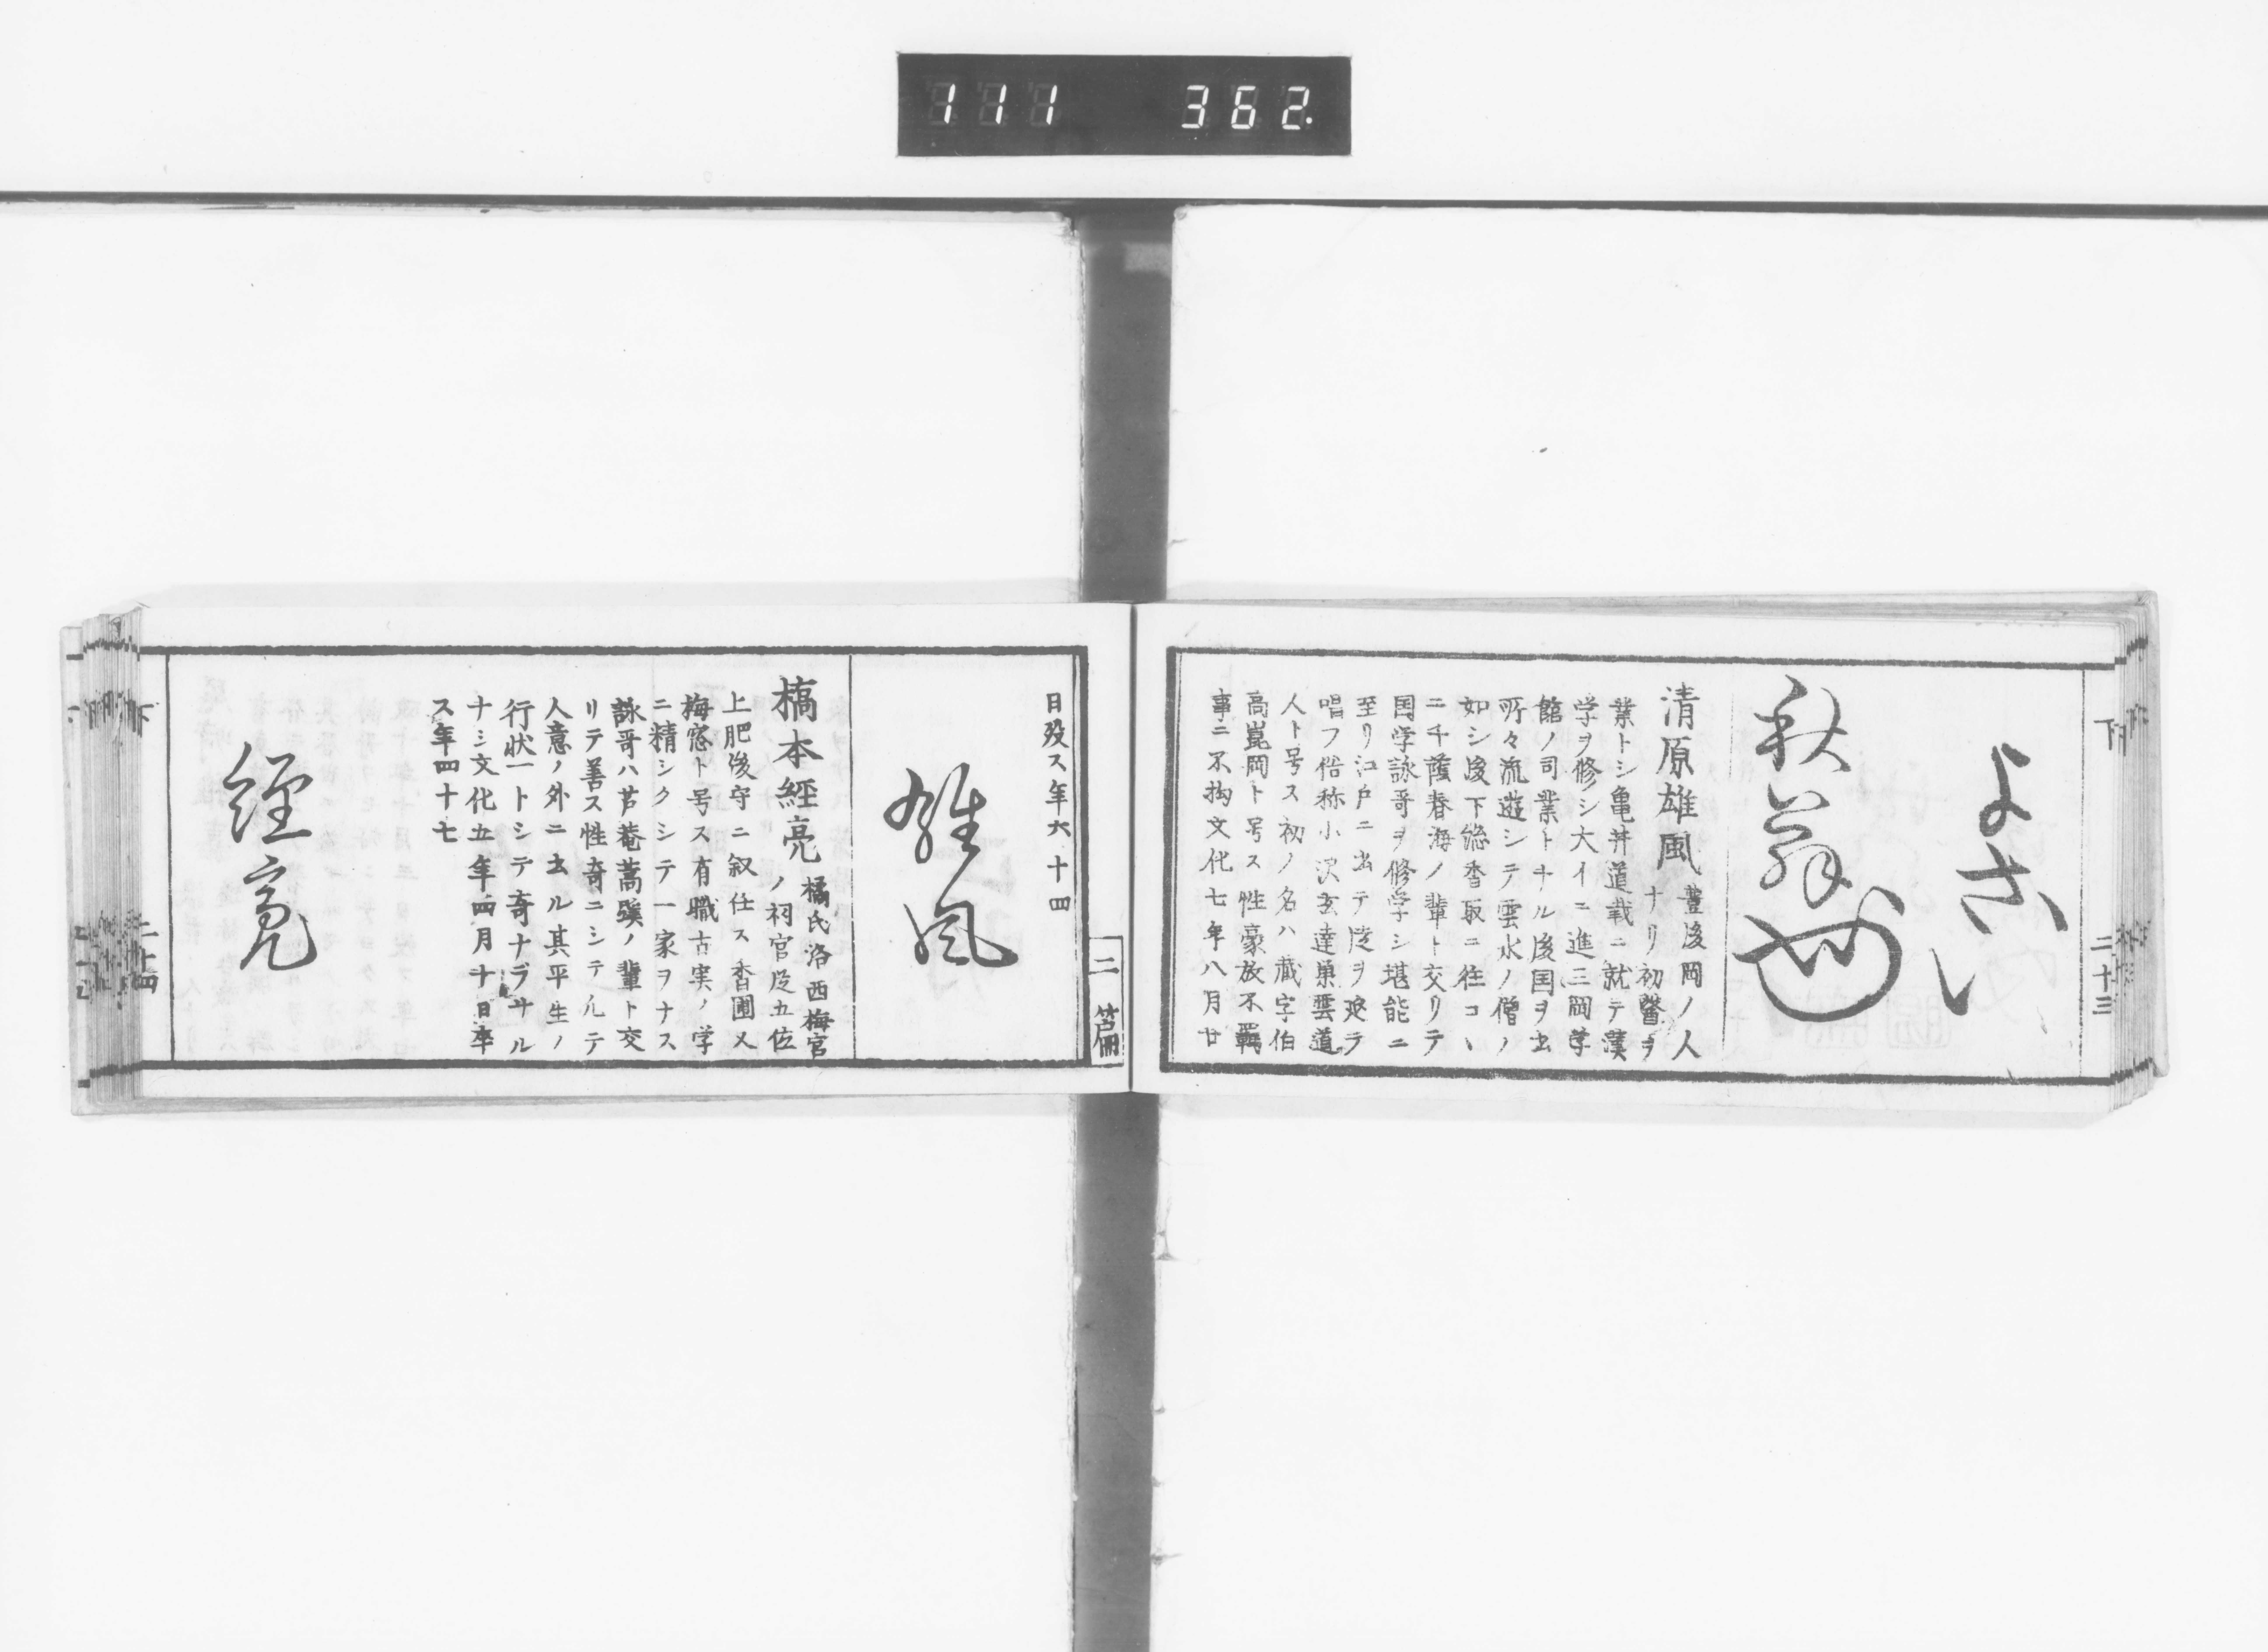 111 362.
下 二十三
秋翁
清原雄風 豊後岡ノ人
ナリ初醫ヲ
業トシ亀井道載ニ就テ漢
学ヲ修シ大イニ進三岡学
館ノ司業トナル後国ヲ出
所々流遊シテ雲水ノ僧ノ
如シ後下総香取ニ往コヽ
ニ千蔭春海ノ輩ト交リテ
国学詠哥ヲ修学シ堪能ニ
至リ江戸ニ出テ徒ヲ延ラ
唱フ俗称小沢玄達巣雲道
人ト号ス初ノ名ハ蔵字伯
高崑岡ト号ス性豪放不羈
事ニ不拘文化七年八月廿
二
日歿ス年六十四
雄風
橋本經亮 橘氏洛西梅宮
ノ祠官従五位
上肥後守ニ叙仕ス香圃又
梅窓ト号ス有職古実ノ学
ニ精シクシテ一家ヲナス
詠哥ハ芦菴蒿蹊ノ輩ト交
リテ善ス性奇ニシテルテ
人意ノ外ニ出ル其平生ノ
行状一トシテ奇ナラサル
ナシ文化五年四月十日卒
ス年四十七
經亮
下 二十四